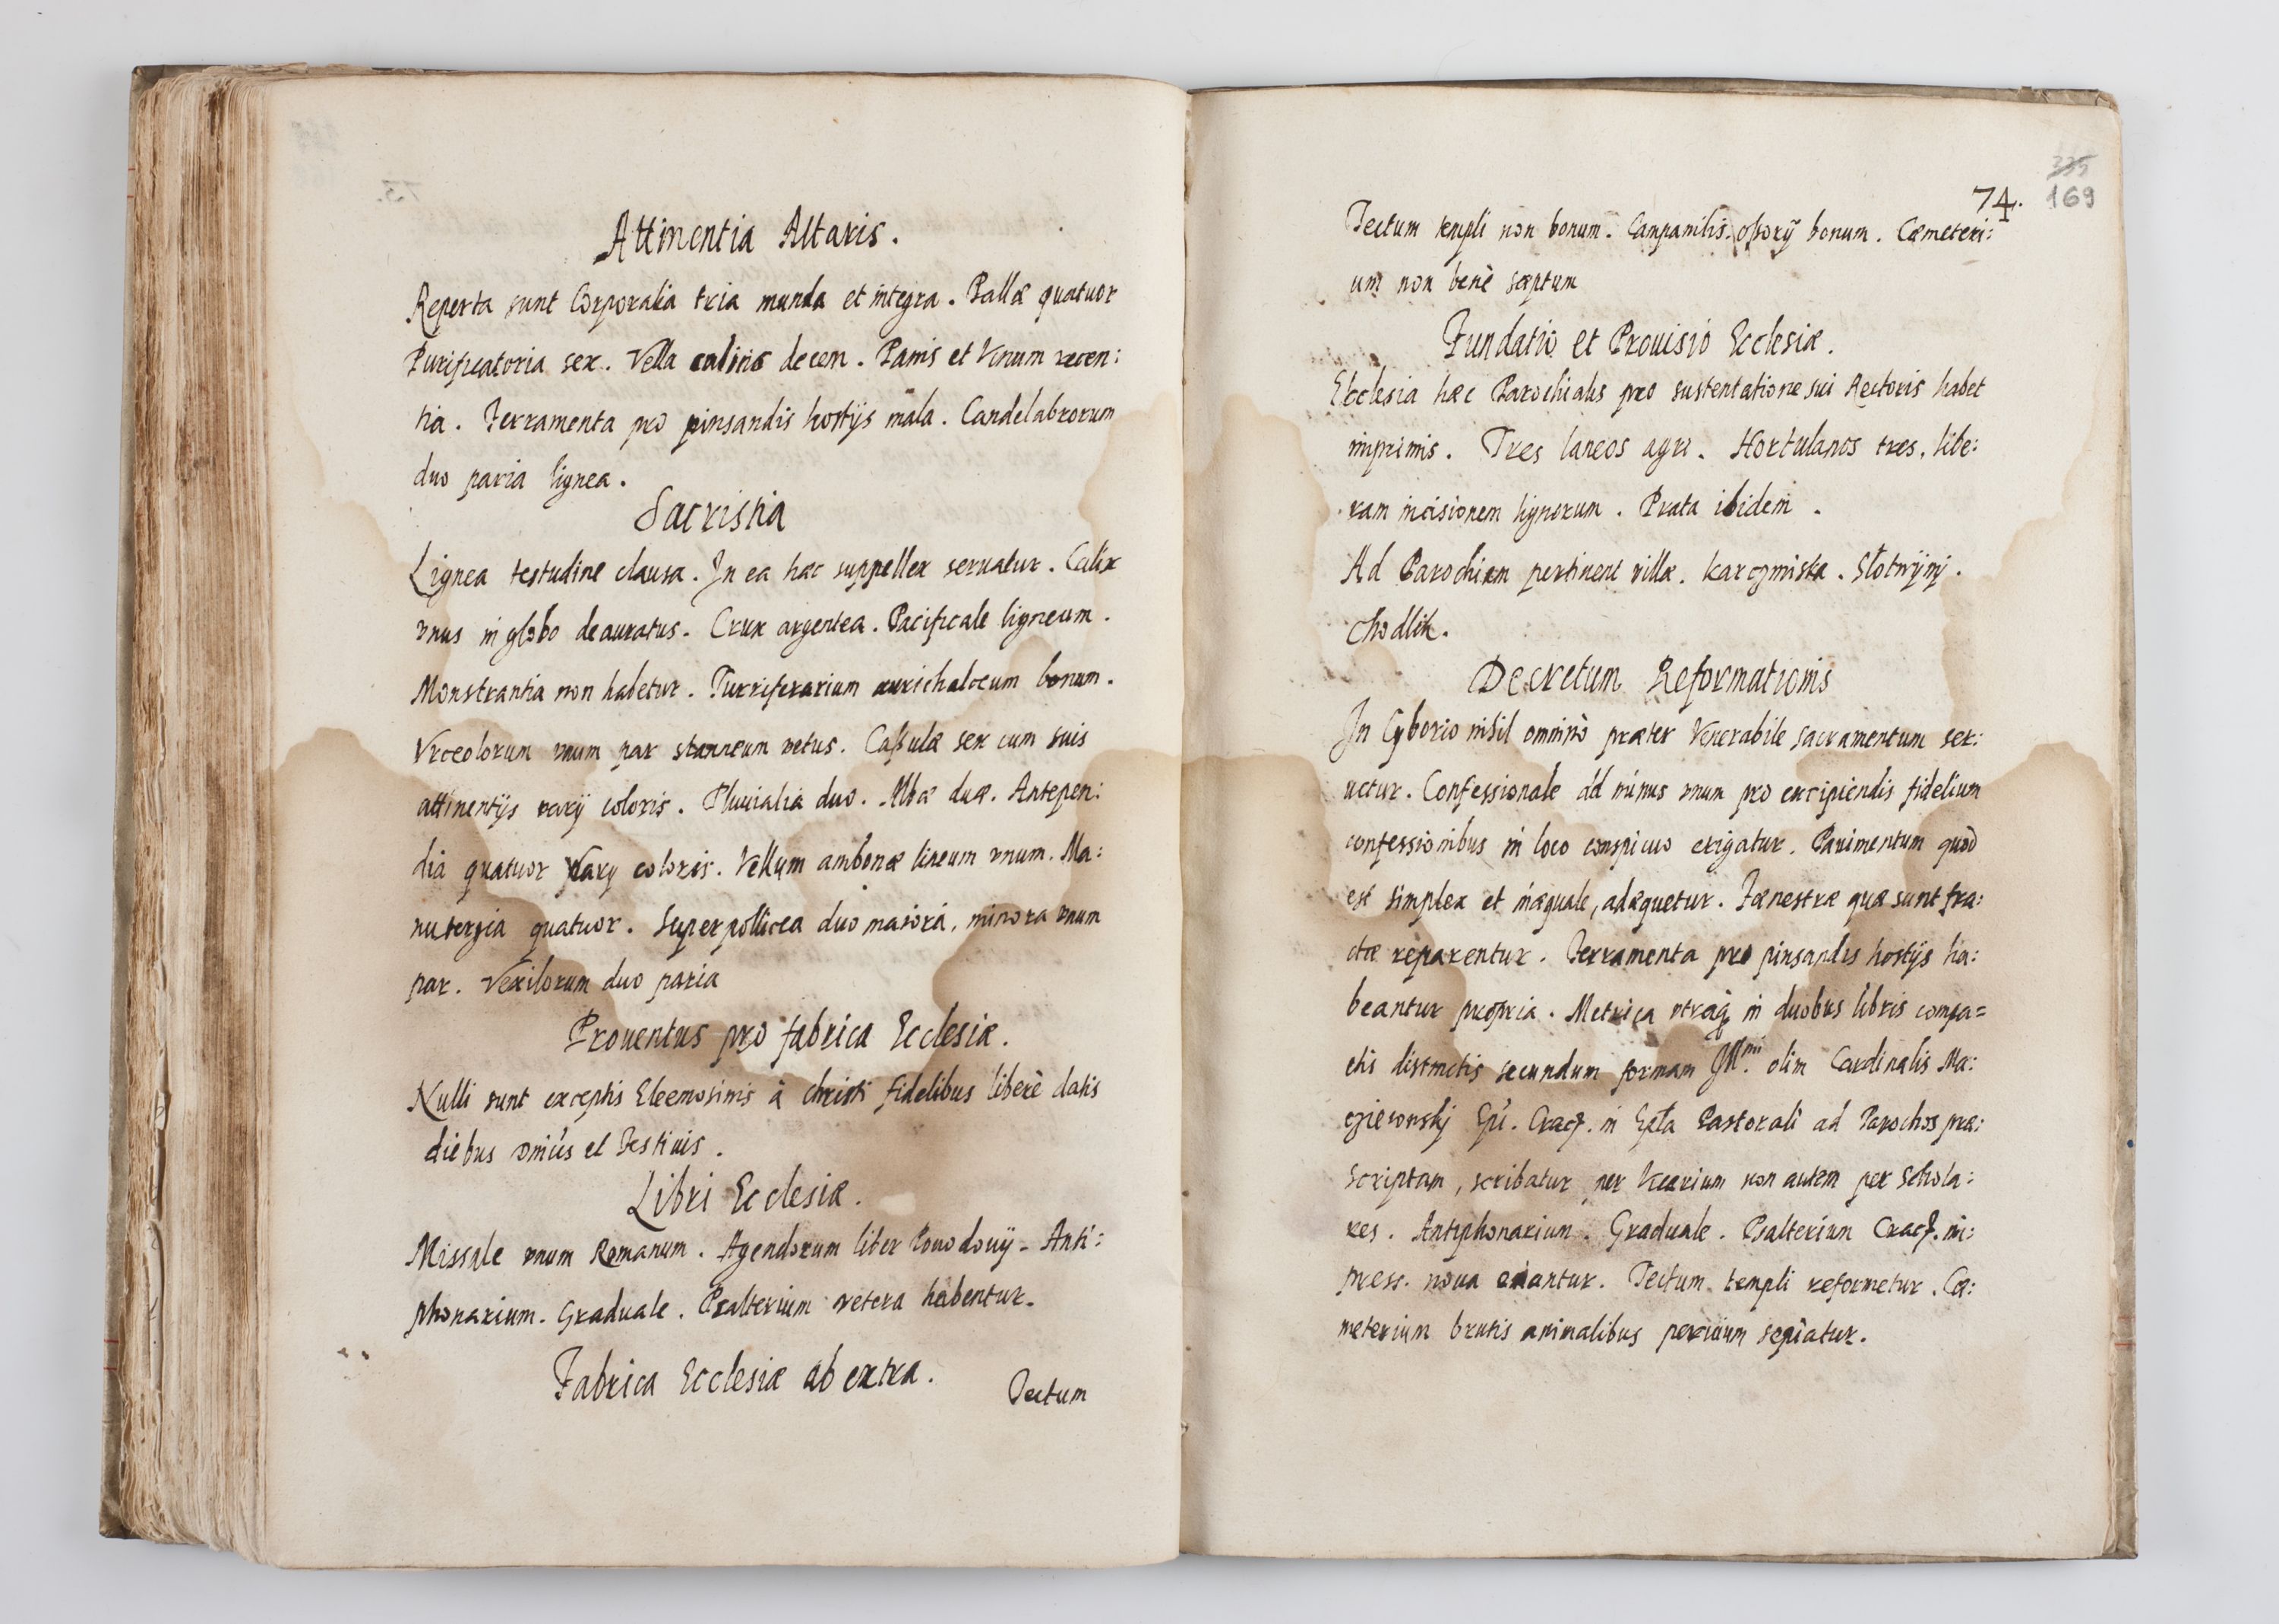 Attinentia Altaris.
Reperta sunt Corporalia tria munda et integra. Pallæ quatuor
Purificatoria sex. Vella calicis decem. Panis et Vinum recen:
tia. Ferramenta pro pinsandis hostijs mala. Candelabrorum
duo paria lignea.
Sacristia
Lignea testudine clausa. In ea hæc suppellex seruatur. Calix
vnus in globo deauratus. Crux argentea. Pacificale ligneum.
Monstrantia non habetur. Turriferarium aurichalceum bonum.
Vrceolorum vnum par stanneum vetus. Caßulæ sex cum suis
attinentijs varij coloris. Pluuialia duo. Albæ duæ. Antepen:
dia quatuor varij coloris. Vellum ambonæ lineum vnum. Ma:
nutergia quatuor. Superpollicea duo maiora, minora vnum
par. Vexilorum duo paria
Prouentus pro fabrica Ecclesiæ.
Nulli sunt exceptis Eleemosinis à christi fidelibus liberè datis
diebus Dnicis et Festiuis.
Libri Ecclesiæ.
Missale vnum Romanum. Agendorum liber Powodouij. Anti:
phonarium. Graduale. Psalterium vetera habentur.
Fabrica Ecclesiæ ab extra.
Tectum
335
169
74.
Tectum templi non bonum. Campanilis. oßorij bonum. Cæmeteri:
um non benè sæptum
Fundatio et Prouisio Ecclesiæ.
Ecclesia hæc Parochialis pro sustentatione sui Rectoris habet
inprimis. Tres laneos agri. Hortulanos tres, libe:
ram incisionem lignorum. Prata ibidem.
Ad Parochiam pertinent villæ. Karczmiska. Słotwijnj.
Chodlik.
Decretum Reformationis
In Cyborio nihil omninò præter Venerabile sacramentum ser:
uetur. Confessionale ad minus vnum pro excipiendis fidelium
confessionibus in loco conspicuo erigatur. Pauimentum quod
est simplex et inæquale, adæquetur. Fænestræ quæ sunt fra:
ctæ reparentur. Ferramenta pro pinsandis hostijs ha:
beantur propria. Metrica vtraq in duobus libris compa=
ctis distinctis secundum formam Illmi. olim Cardinalis Ma:
cieiowskj Epi. Crac. in Epła Pastorali ad Parochos præ:
scriptam, scribatur per Vicarium non autem per Schola:
res. Antiphonarium. Graduale. Psalterium Crac. im:
press. noua emantur. Tectum templi reformetur. Cæ:
meterium brutis animalibus peruium sepiatur.